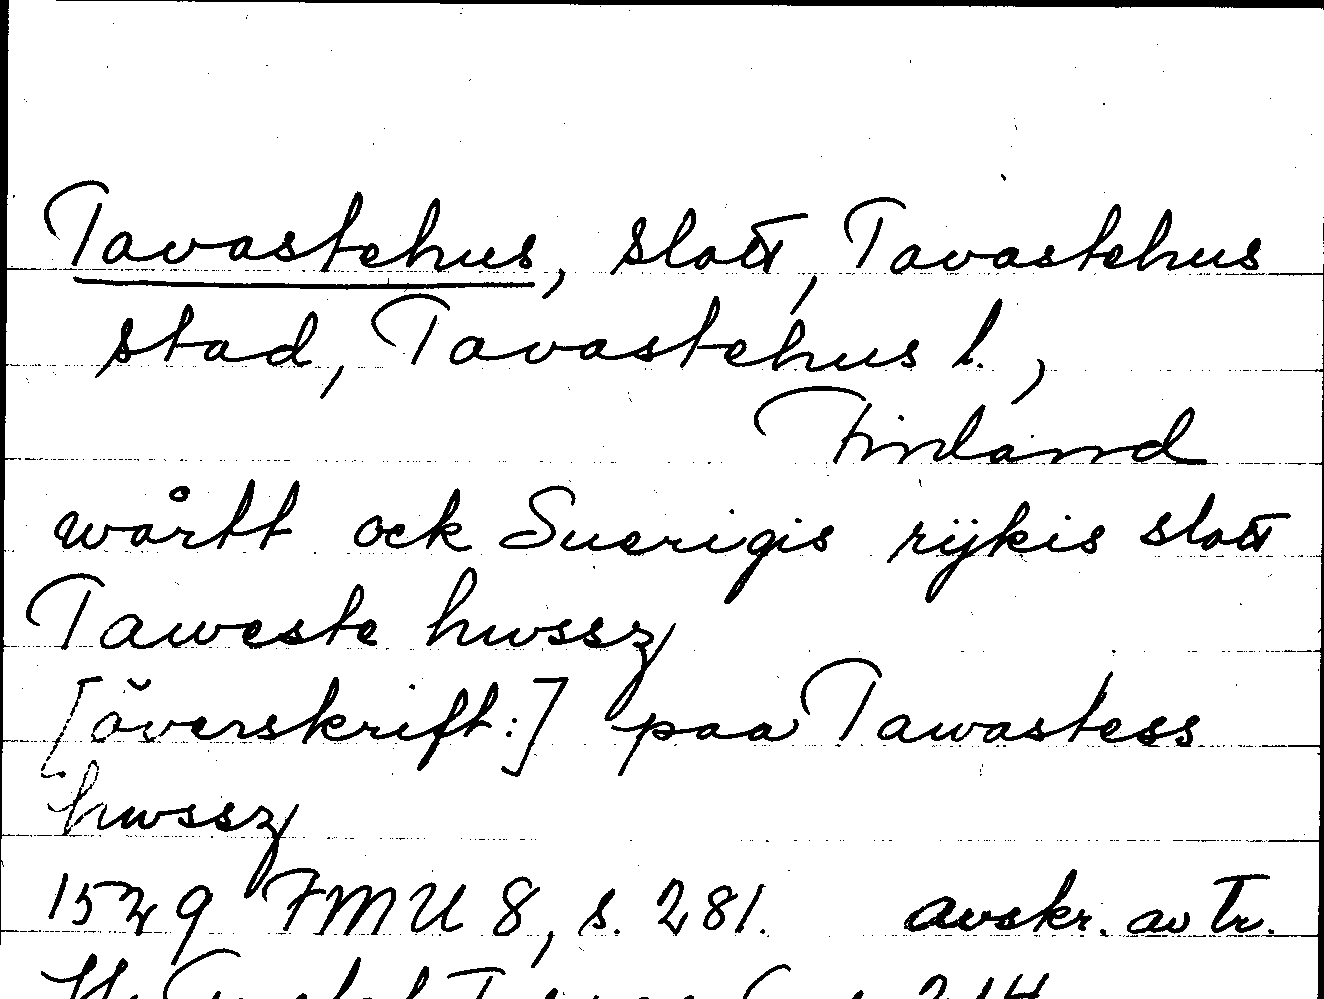 Tavastehus, slott, Tavastehus
stad, Tavastehus l.,
Finland
wårtt ock Suerigis rijkis slott
Taweste hwssz
[överskrift:] paa Tawastess
hwssz
1529 FMU 8, s. 281. avskr. av Tr.